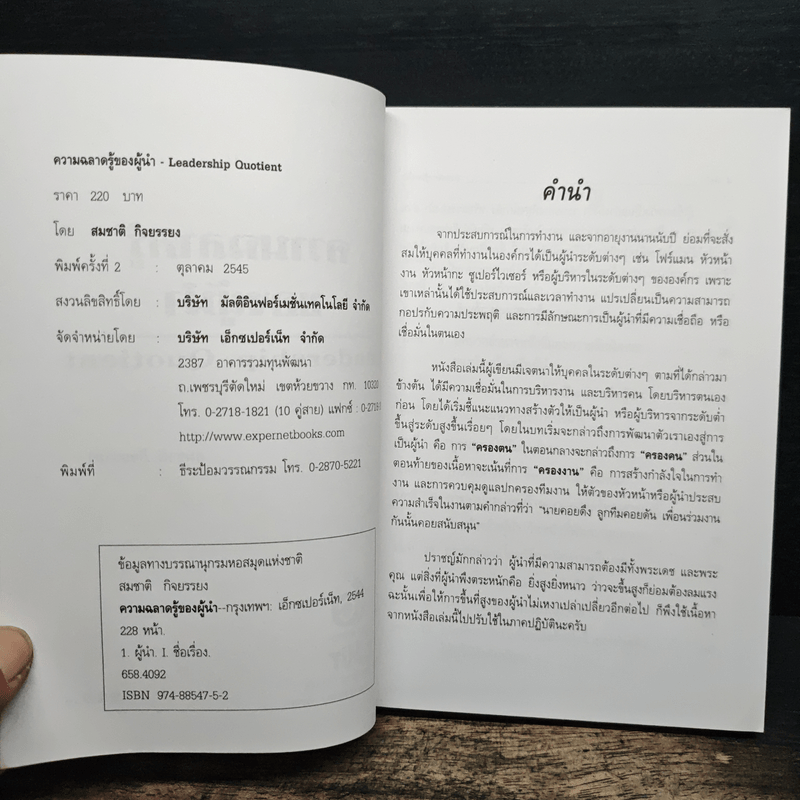 ความฉลาดรู้ของผู้นำ - Leadership Quotient
ราคา 220 บาท
โดย สมชาติ กิจยรรยง
พิมพ์ครั้งที่ 2 : ตุลาคม 2545
สงวนลิขสิทธิ์โดย : บริษัท มัลติอินฟอร์เมชั่นเทคโนโลยี จำกัด
จัดจำหน่ายโดย : บริษัท เอ็กซเปอร์เน็ท จำกัด
2387 อาคารรวมทุนพัฒนา
ถ.เพชรบุรีตัดใหม่ เขตห้วยขวาง กท. 10320
โทร. 0-2718-1821 (10 คู่สาย) แฟกซ์ : 0-2718-
http://www.expernetbooks.com
พิมพ์ที่ : ธีระป้อมวรรณกรรม โทร. 0-2870-5221
ข้อมูลทางบรรณานุกรมหอสมุดแห่งชาติ
สมชาติ กิจยรรยง
ความฉลาดรู้ของผู้นำ--กรุงเทพฯ: เอ็กซเปอร์เน็ท, 2544
228 หน้า.
1. ผู้นำ. I. ชื่อเรื่อง.
658.4092
ISBN 974-88547-5-2
คำนำ
จากประสบการณ์ในการทำงาน และจากอายุงานนานนับปี ย่อมที่จะสั่ง
สมให้บุคคลที่ทำงานในองค์กรได้เป็นผู้นำระดับต่างๆ เช่น โฟร์แมน หัวหน้า
งาน หัวหน้ากะ ซูเปอร์ไวเซอร์ หรือผู้บริหารในระดับต่างๆ ขององค์กร เพราะ
เขาเหล่านั้นได้ใช้ประสบการณ์และเวลาทำงาน แปรเปลี่ยนเป็นความสามารถ
กอปรกับความประพฤติ และการมีลักษณะการเป็นผู้นำที่มีความเชื่อถือ หรือ
เชื่อมั่นในตนเอง
หนังสือเล่มนี้ผู้เขียนมีเจตนาให้บุคคลในระดับต่างๆ ตามที่ได้กล่าวมา
ข้างต้น ได้มีความเชื่อมั่นในการบริหารงาน และบริหารคน โดยบริหารตนเอง
ก่อน โดยได้เริ่มชี้แนะแนวทางสร้างตัวให้เป็นผู้นำ หรือผู้บริหารจากระดับต่ำ
ขึ้นสู่ระดับสูงขึ้นเรื่อยๆ โดยในบทเริ่มจะกล่าวถึงการพัฒนาตัวเราเองสู่การ
เป็นผู้นำ คือ การ "ครองตน" ในตอนกลางจะกล่าวถึงการ "ครองคน" ส่วนใน
ตอนท้ายของเนื้อหาจะเน้นที่การ "ครองงาน" คือ การสร้างกำลังใจในการทำ
งาน และการควบคุมดูแลปกครองทีมงาน ให้ตัวของหัวหน้าหรือผู้นำประสบ
ความสำเร็จในงานตามคำกล่าวที่ว่า "นายคอยดึง ลูกทีมคอยดัน เพื่อนร่วมงาน
กันนั้นคอยสนับสนุน"
ปราชญ์มักกล่าวว่า ผู้นำที่มีความสามารถต้องมีทั้งพระเดช และพระ
คุณ แต่สิ่งที่ผู้นำพึงตระหนักคือ ยิ่งสูงยิ่งหนาว ว่าวจะขึ้นสูงก็ย่อมต้องลมแรง
ฉะนั้นเพื่อให้การขึ้นที่สูงของผู้นำไม่เหงาเปล่าเปลี่ยวอีกต่อไป ก็พึงใช้เนื้อหา
จากหนังสือเล่มนี้ไปปรับใช้ในภาคปฏิบัตินะครับ